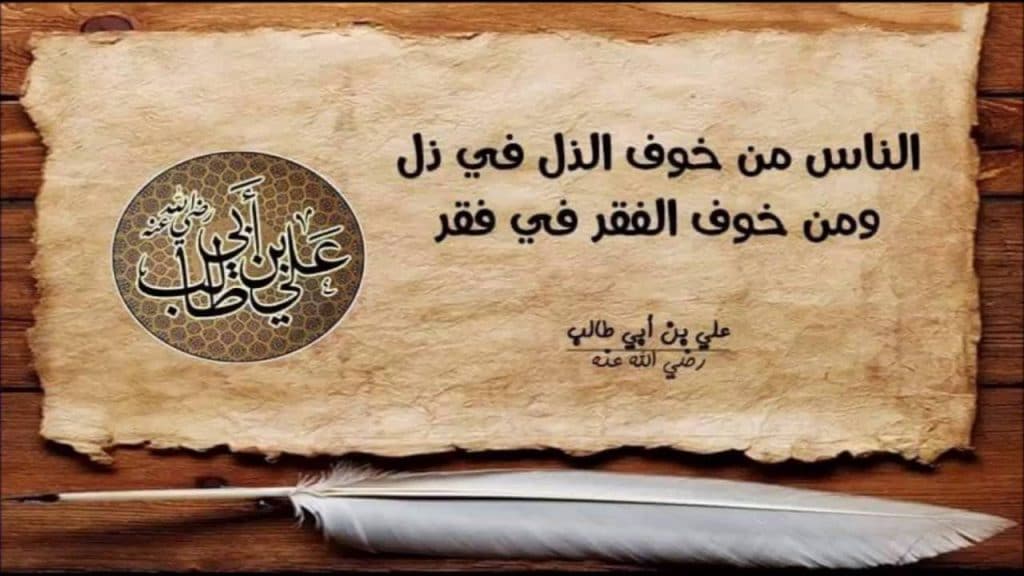 الناس من خوف الذل في ذل
ومن خوف الفقر في فقر
علي بن أبي طالب
رضي الله عنه
علي بن أبي طالب
رضي الله عنه